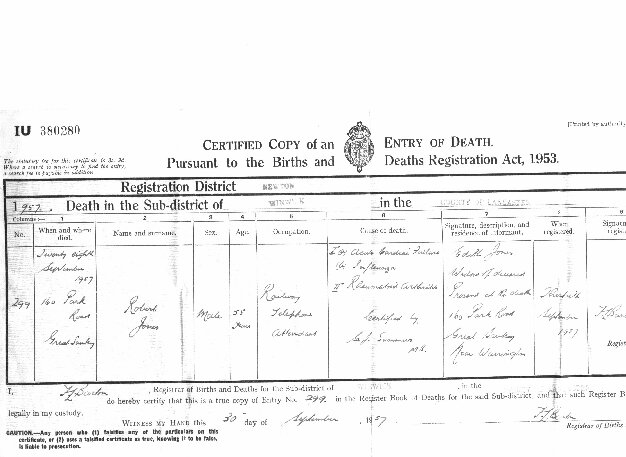 IU 380280
[Printed by authority
CERTIFIED COPY of an ENTRY OF DEATH.
The statutory fee for this certificate is
Where a search is necessary to find the entry,
a search fee is payable in addition.
Pursuant to the Births and Deaths Registration Act, 1953.
Registration District NEWTON
1957. Death in the Sub-district of WINWICK in the COUNTY OF LANCASTER
Columns :— 1 2 3 4 5 6 7 8
No. When and where died. Name and surname. Sex. Age. Occupation. Cause of death. Signature, description, and residence of informant. When registered.
299
Twenty eighth
September
1957
160 Park
Road
Great Sankey
Robert
Jones
Male
55
Years
Railway
Telephone
Attendant
I (a) Acute Cardiac Failure
(b) Influenza
II Rheumatoid Arthritis
Certified by
M.B.
Edith Jones
Widow of deceased
Present at the death
160 Park Road
Great Sankey
Near Warrington
Thirtieth
September
1957
I, , Registrar of Births and Deaths for the Sub-district of WINWICK , in the
do hereby certify that this is a true copy of Entry No. 299 in the Register Book of Deaths for the said Sub-district, and that such Register B
legally in my custody.
WITNESS MY HAND this 30 day of September , 1957
CAUTION.—Any person who (1) falsifies any of the particulars on this
certificate, or (2) uses a falsified certificate as true, knowing it to be false,
is liable to prosecution.
Registrar of Births